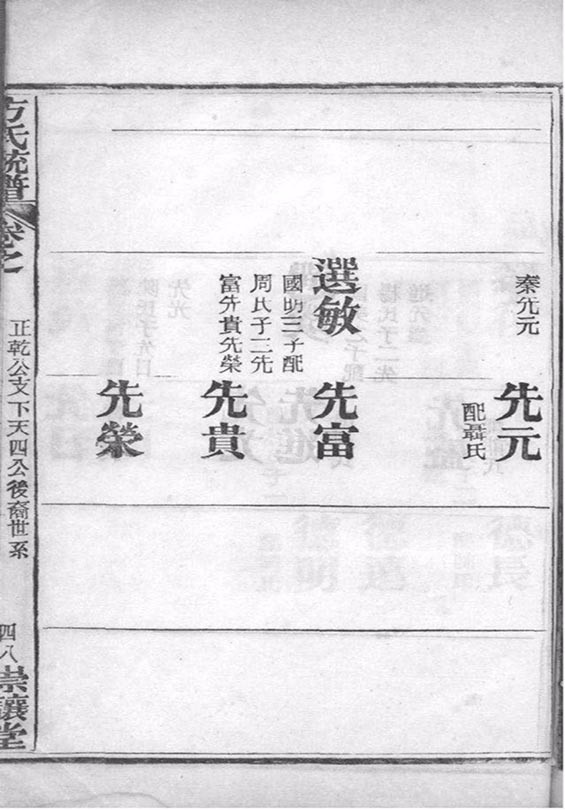 秦先元
先元
配聶氏
選敏
國明三子配
周氏子三先
富先貴先榮
先富
先貴
先榮
方氏統譜
卷之
正乾公支下天四公後裔世系
四八
崇讓堂